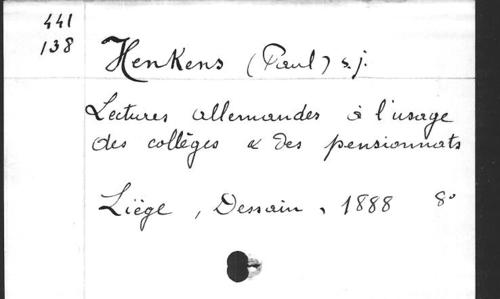 441
138
Henkens (Paul) s.j.
Lectures allemandes à l'usage
des collèges & des pensionnats
Liège, Dessain, 1888 8°